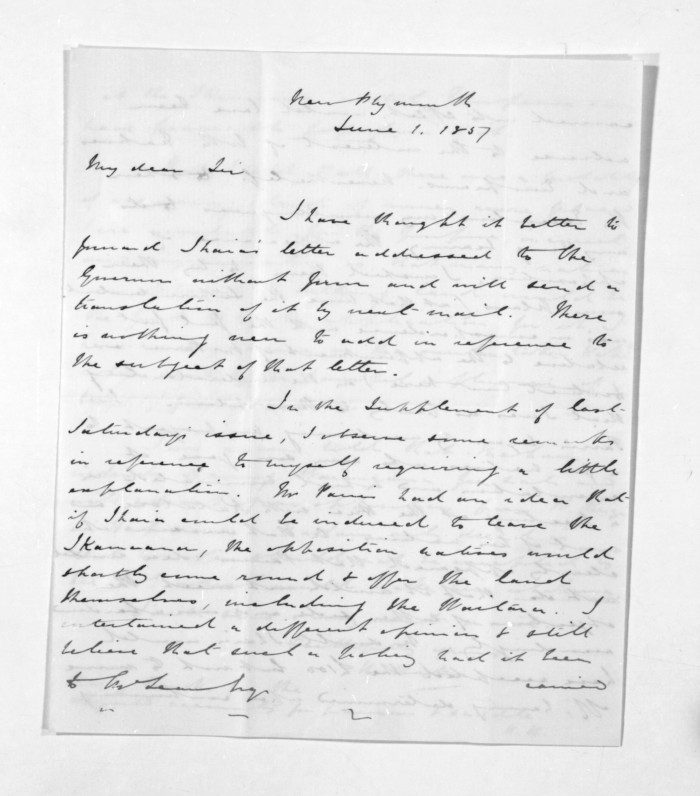 New Plymouth
June 1. 1857
My dear Sir
I have thought it better to
forward Ihaia's letter addressed to the
Governor without favor and will send a
translation of it by next mail. There
is nothing new to add in reference to
the subject of that letter.
In the Supplement of last
Saturday's issue, I observe some remarks
in reference to myself requiring a little
explanation. Mr Parris had an idea that
if Ihaia could be induced to leave the
Ikamoana, the opposition natives would
shortly come round & offer the land
themselves, including the Waitara. I
entertained a different opinion & still
believe that such a had it been
to carried